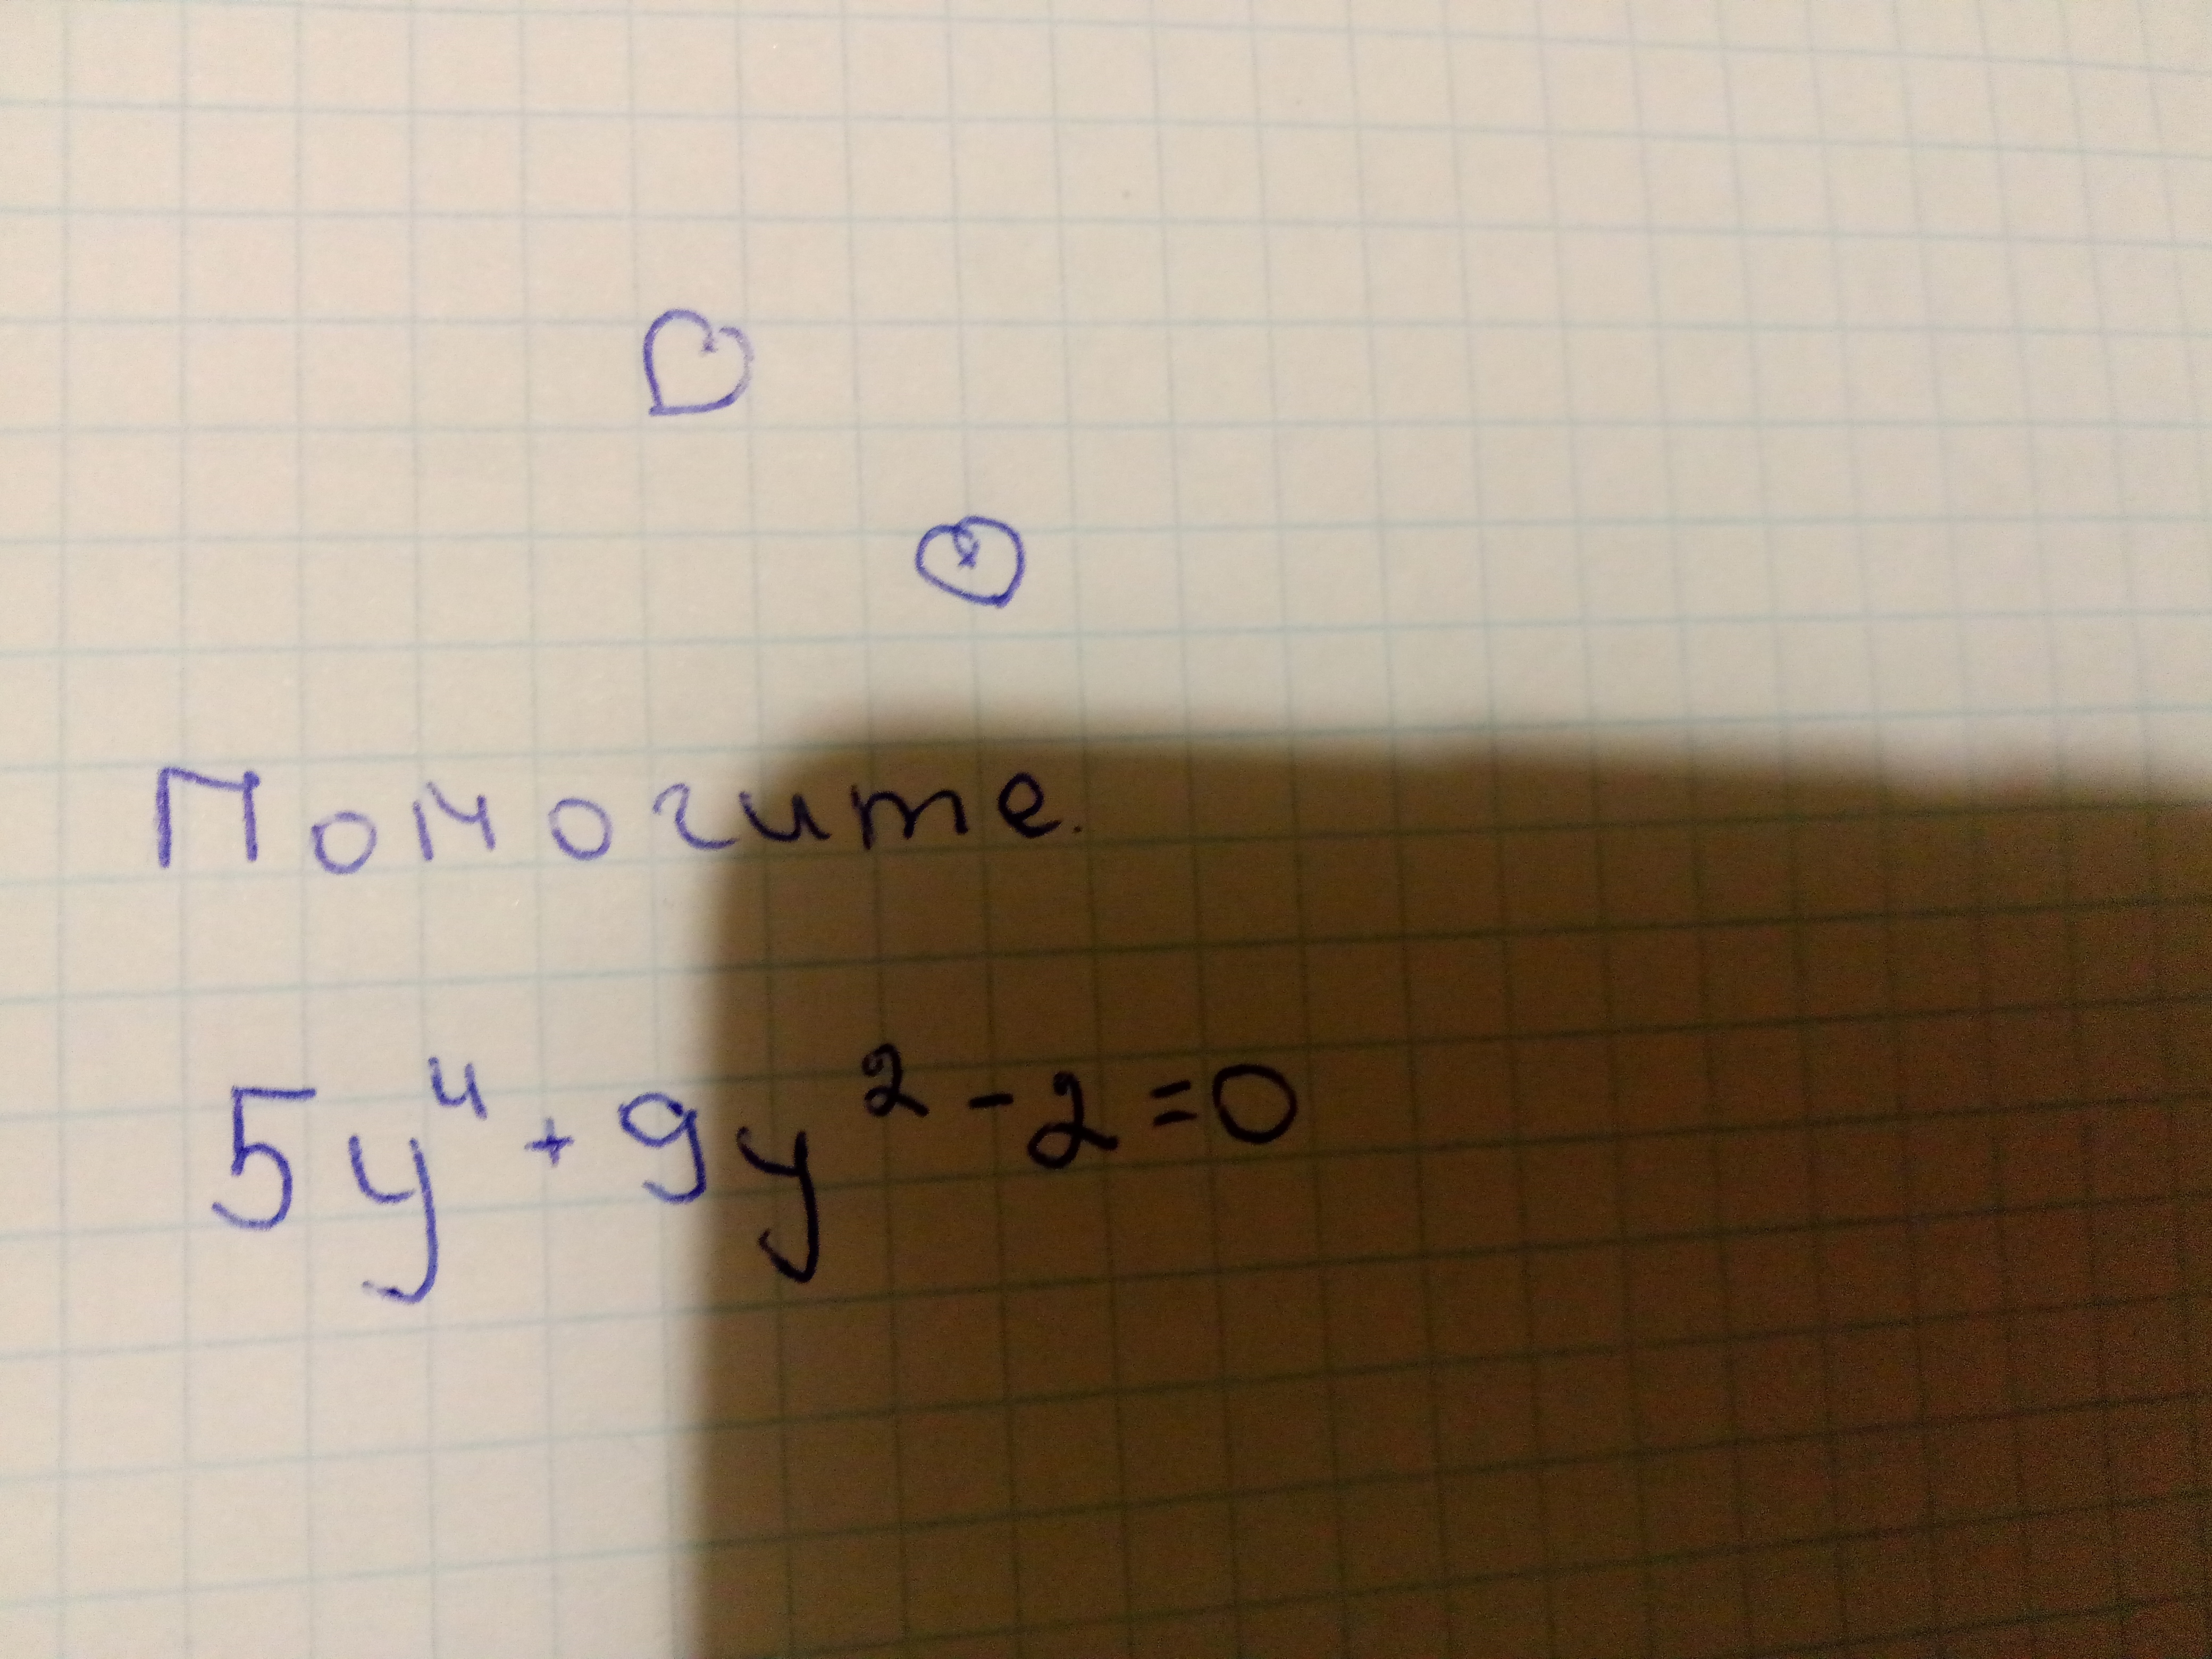 Помогите.
5y⁴ + 9y² - 2 = 0